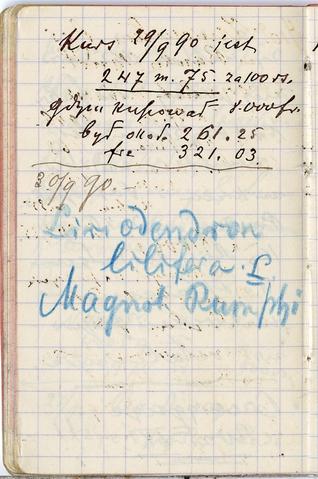 Kurs 29/9 90 jest
247 m. 75 za 100 rs.
gdym kupował 8.000 fr.
był okoł. 261.25
frc 321.03
30/9 90.—
Liriodendron
lilifera L.
Magnol Rumphi